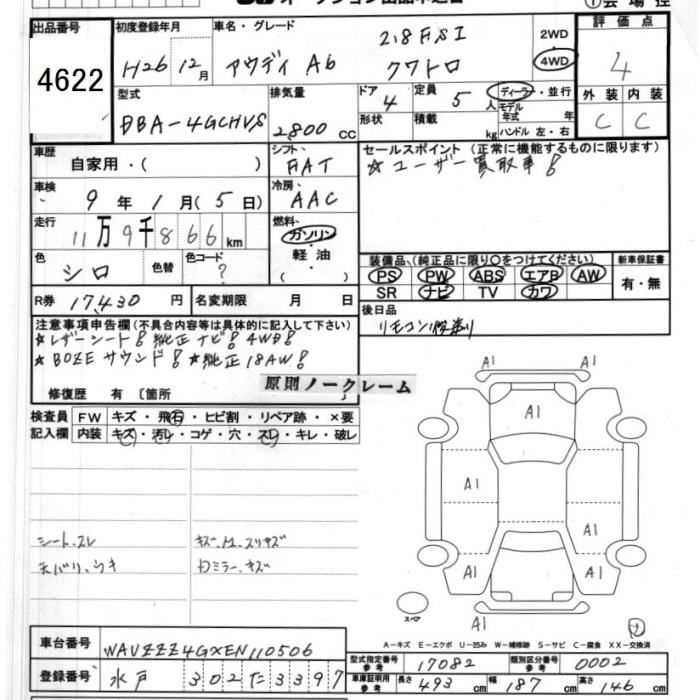 出品番号 初度登録年月 車名・グレード 評価点
4622 H26年 12月 アウディ A6 2.8FSI クワトロ 2WD 4WD 4
型式 排気量 ドア 定員 ディーラー・並行 外装 内装
DBA-4GCHVS 2,800cc 4 5人 モデル年式 年 C C
形状 積載 kg ハンドル 左・右
車歴 自家用・( ) シフト FAT セールスポイント (正常に機能するものに限ります)
☆ユーザー買取車!
車検 9年 1月 (5日) 冷房 AAC
走行 11万9千866km 燃料 ガソリン・軽油・( )
色 シロ 色替 色コード ?
装備品、(純正品に限り○をつけてください) 新車保証書
PS PW ABS エアB AW 有・無
SR ナビ TV カワ
R券 17,430円 名変期限 月 日 後日品
リモコン
注意事項申告欄 (不具合内容等は具体的に記入して下さい)
☆レザーシート! 純正ナビ! 4WD!
☆BOZEサウンド! ☆純正18AW!
修復歴 有 〔箇所
原則ノークレーム
検査員記入欄 FW キズ・飛石・ヒビ割・リペア跡・×要
内装 キズ・汚レ・コゲ・穴・スレ・キレ・破レ
A1
A1
A1
A1
A1
A1
A1
A1
シート、スレ
天バリ、ウキ
スペア
A-キズ E-エクボ U-凹み W-補修跡 S-サビ C-腐食 XX-交換済
車台番号 WAUZZZ4GXEN110506
登録番号 水戸 302 た 3397
型式指定番号 参考 17082 類別区分番号 参考 0002
車庫証明用 参考 長さ 493cm 幅 187cm 高さ 146cm